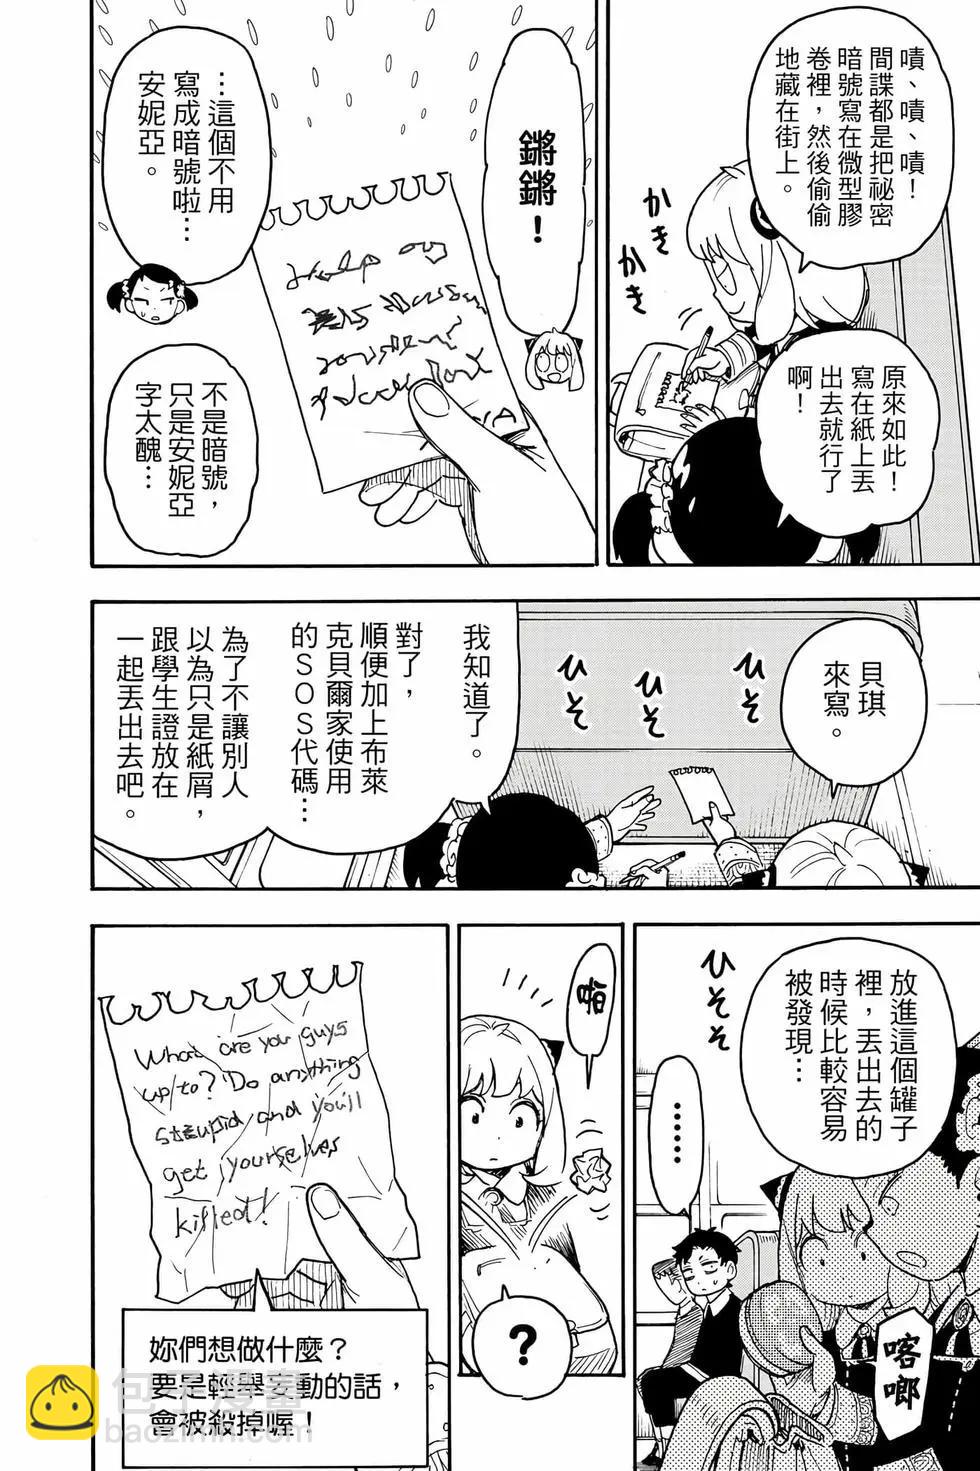 嘖、嘖、嘖！
間諜都是把祕密
暗號寫在微型膠
卷裡，然後偷偷
地藏在街上。
かきかき
かきかき
原來如此！
寫在紙上丟
出去就行了
啊！
鏘鏘！
…這個不用
寫成暗號啦…
安妮亞。
不是暗號，
只是安妮亞
字太醜…
貝琪
來寫。
ひそ
ひそ
ひそ
我知道了。
對了，
順便加上布萊
克貝爾家使用
的SOS代碼…
為了不讓別人
以為只是紙屑，
跟學生證放在
一起丟出去吧。
放進這個罐子
裡，丟出去的
時候比較容易
被發現…
ひそそ
喀啷
……
？
What are you guys
up to? Do anything
stupid and you'll
get yourselves
killed!
妳們想做什麼？
要是輕舉妄動的話，
會被殺掉喔！
包子漫畫
baozimh.com